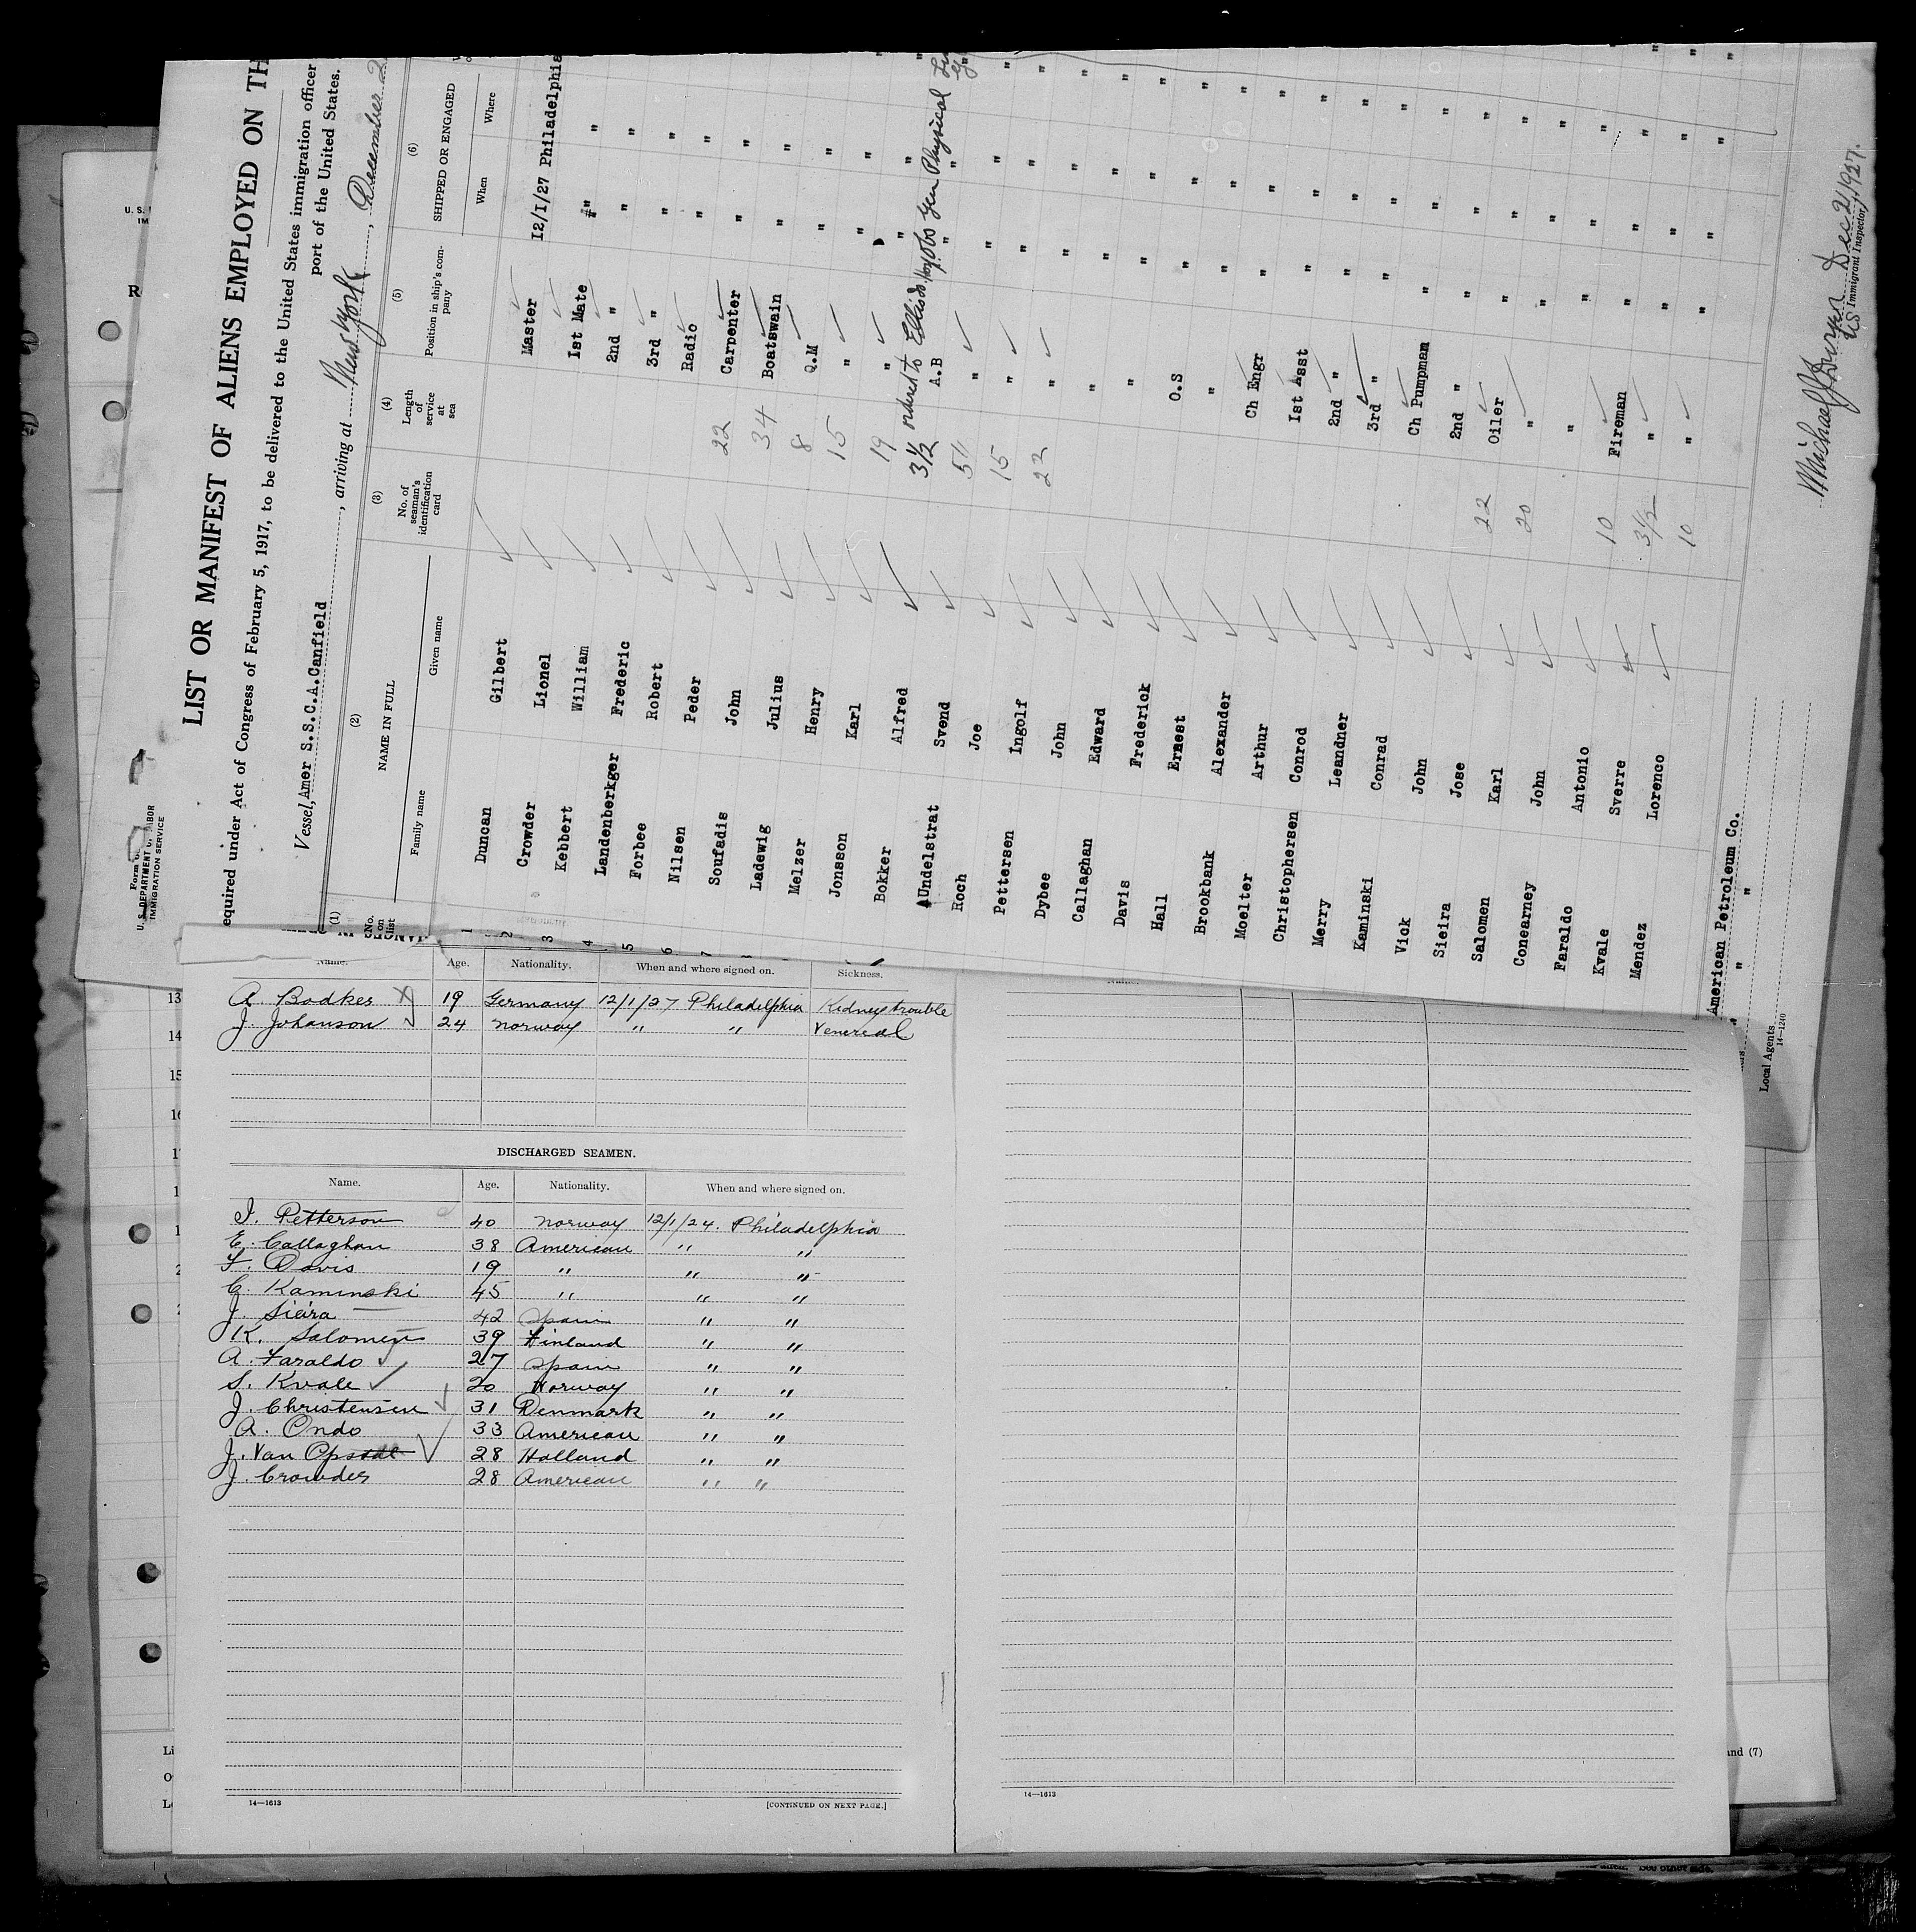 Form
U. S. DEPARTMENT OF LABOR
IMMIGRATION SERVICE
LIST OR MANIFEST OF ALIENS EMPLOYED ON TH
equired under Act of Congress of February 5, 1917, to be delivered to the United States immigration officer
port of the United States.
Vessel, Amer S.S.C.A.Canfield, arriving at New York, December 2
(1) (2) (3) (4) (5) (6)
No. on list NAME IN FULL No. of seaman's identification card Length of service at sea Position in ship's company SHIPPED OR ENGAGED
Family name Given name When Where
1 Duncan Gilbert Master 12/1/27 Philadelphia
2 Crowder Lionel 1st Mate " "
3 Kebbert William 2nd " " "
4 Landenberkger Frederic 3rd " " "
5 Forbee Robert Radio " "
6 Nilsen Peder 22 Carpenter " "
7 Soufadis John 34 Boatswain " "
Ladewig Julius 8 Q.M " "
Melzer Henry 15 " " "
Jonsson Karl 19 " " "
Bokker Alfred 3½ ordered to Ellis Is. Hosp. obs Gen Physical
Undelstrat Svend A.B " "
Roch Joe 5½ " " "
Pettersen Ingolf 15 " " "
Dybee John 22 " " "
Callaghan Edward " " "
Davis Frederick " " "
Hall Ernest O.S " "
Brookbank Alexander " " "
Moelter Arthur Ch Engr " "
Christophersen Conrod 1st Asst " "
Merry Leandner 2nd " " "
Kaminski Conrad 3rd " " "
Vick John Ch Pumpman " "
Sieira Jose 2nd " " "
Salomen Karl 22 Oiler " "
Conearney John 20 " " "
Faraldo Antonio " " "
Kvale Sverre 10 Fireman " "
Mendez Lorenco 3½ " " "
10 " " "
American Petroleum Co.
" " "
Local Agents
14—1240
Dec 2, 1927.
US Immigrant Inspector
Name. Age. Nationality. When and where signed on. Sickness.
A. Bodker 19 Germany 12/1/27 Philadelphia Kidney trouble
J. Johanson 24 Norway " " Venereal
DISCHARGED SEAMEN.
Name. Age. Nationality. When and where signed on.
I. Petterson 40 Norway 12/1/27. Philadelphia
E. Callaghan 38 American " "
F. Davis 19 " " "
C. Kaminski 45 " " "
J. Sieira 42 Spain " "
K. Salomen 39 Finland " "
A. Faraldo 27 Spain " "
S. Kvale 20 Norway " "
J. Christensen 31 Denmark " "
A. Ondo 33 American " "
J. Van Opstal 28 Holland " "
J. Crowder 28 American " "
14—1613
[CONTINUED ON NEXT PAGE.]
14—1613
and (7)